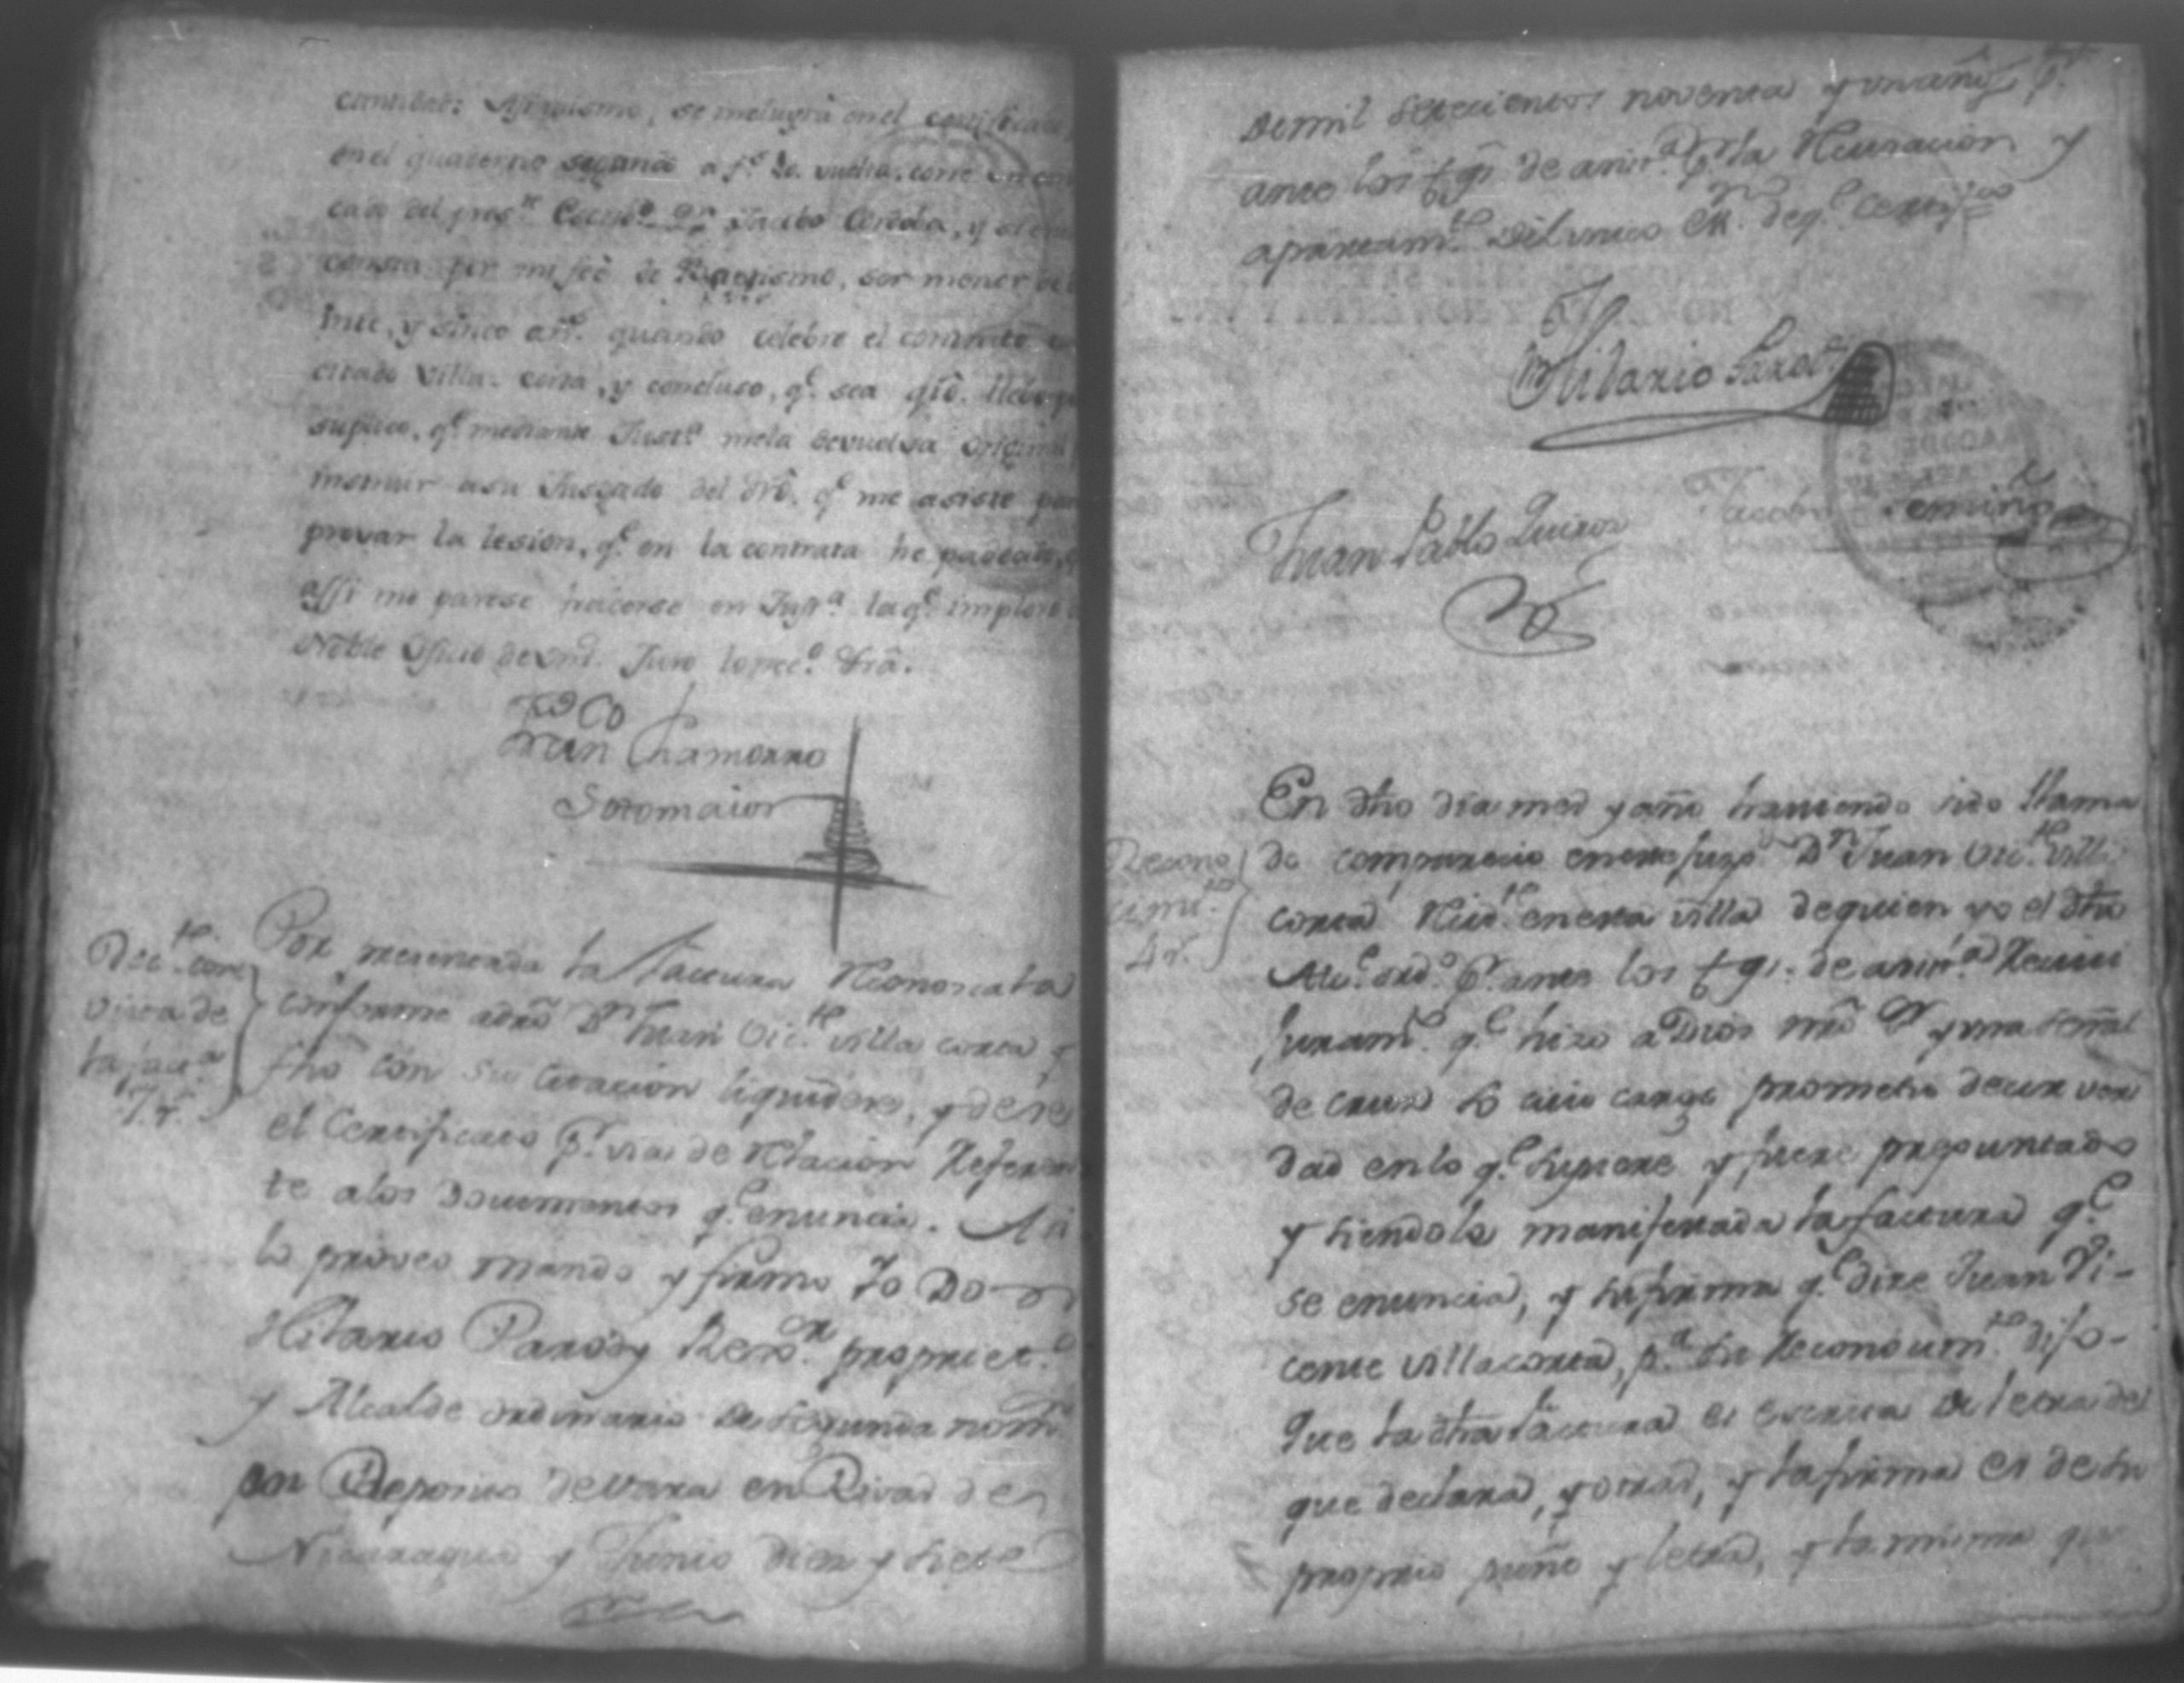 cantidad: Asimismo, se incluyrá en el certificado,
en el quaderno segundo a f.s 20. vuelta, corre un
cado del pres.te Jacobo Cordoba, y
consta por mi feé de Baptismo, ser menor de
inte, y sinco añ.s quando celebre el contrato
citado Villa-corta, y concluso, q.e sea
suplico, q.e mediante Just.a me la devuelva original
instruir a su Jusgado del dro. q.e me asiste
provar la lesion, q.e en la contrata he padecido,
assi me parese hacerse en Just.a la q.e imploro
noble Oficio de Vmd. Juro lo nec.o &ra.
Fran.co Chamorro
Sotomaior
Por presentada la factura Reconoscala
conforme a dro D.n Juan Vic.te Villa corta y
fho con su citacion liquidese, y dese
el Certificato p.r via de Relacion Referen
te a los Documentos q.e enuncia. Asi
lo proveo mando y firmo Yo Don
Hilario Parody Rexd.or propriet.o
y Alcalde ordinario de segunda nom.
en Deposito de vara en Rivas de
Nicaragua y Junio diez y siete
de mil setecientos noventa y un añ.s p.r
ante los tgs. de asist.a p.r la Recusacion y
apartam.to del unico Es.no de q.e certifico
Hilario Parody
Juan Pablo Quiros
Jacobo
Recono
cimi.to
4 r.
En dho dia mes y año haviendo sido llama
do comparecio en este Juzg.o D.n Juan Vic.te Villa
corta Resid.te en esta Villa de quien yo el dho
Alc.e ord.o p.r ante los tgs. de asist.a Recivi
Juram.to q.e hizo a Dios nro S.r y una señal
de cruz so cuio cargo prometio decir ver
dad en lo q.e supiere y fuere preguntado
y siendole manifestada la factura q.e
se enuncia, y su firma q.e dize Juan Vi-
cente Villacorta, p.a su Reconocim.to dijo-
Que la dha factura es escrita de letra del
que declara, y otras, y la firma es de su
proprio puño y letra, y la misma que